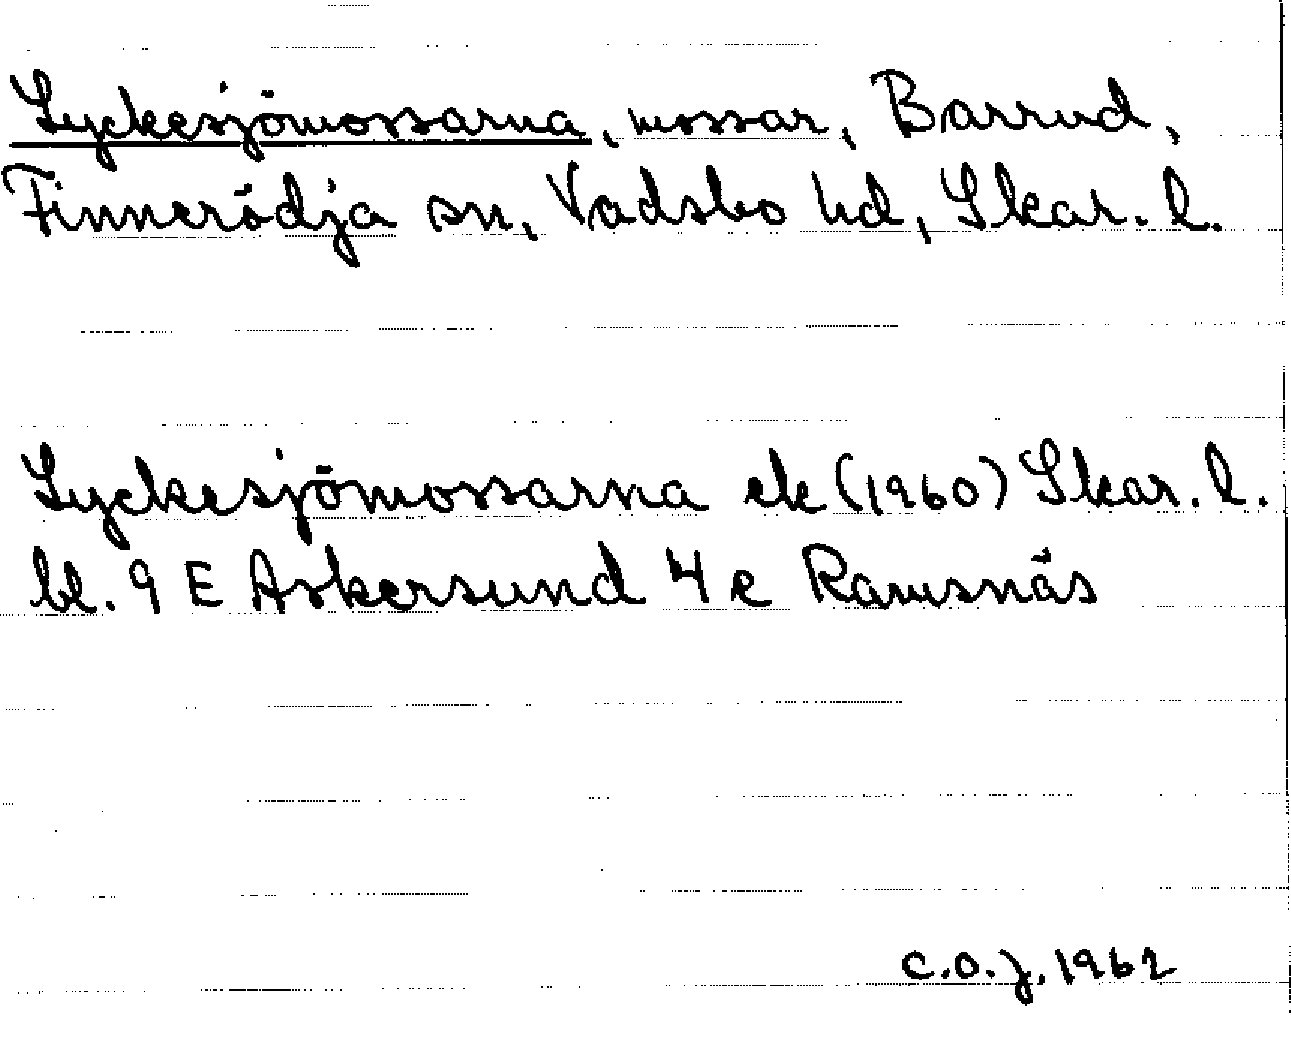 Lyckesjömossarna, mossar, Barrud,
Finnerödja sn, Vadsbo hd, Skar. l.
Lyckesjömossarna ek (1960) Skar. l.
bl. 9 E Askersund 4 e Ramsnäs
C.O.J. 1962